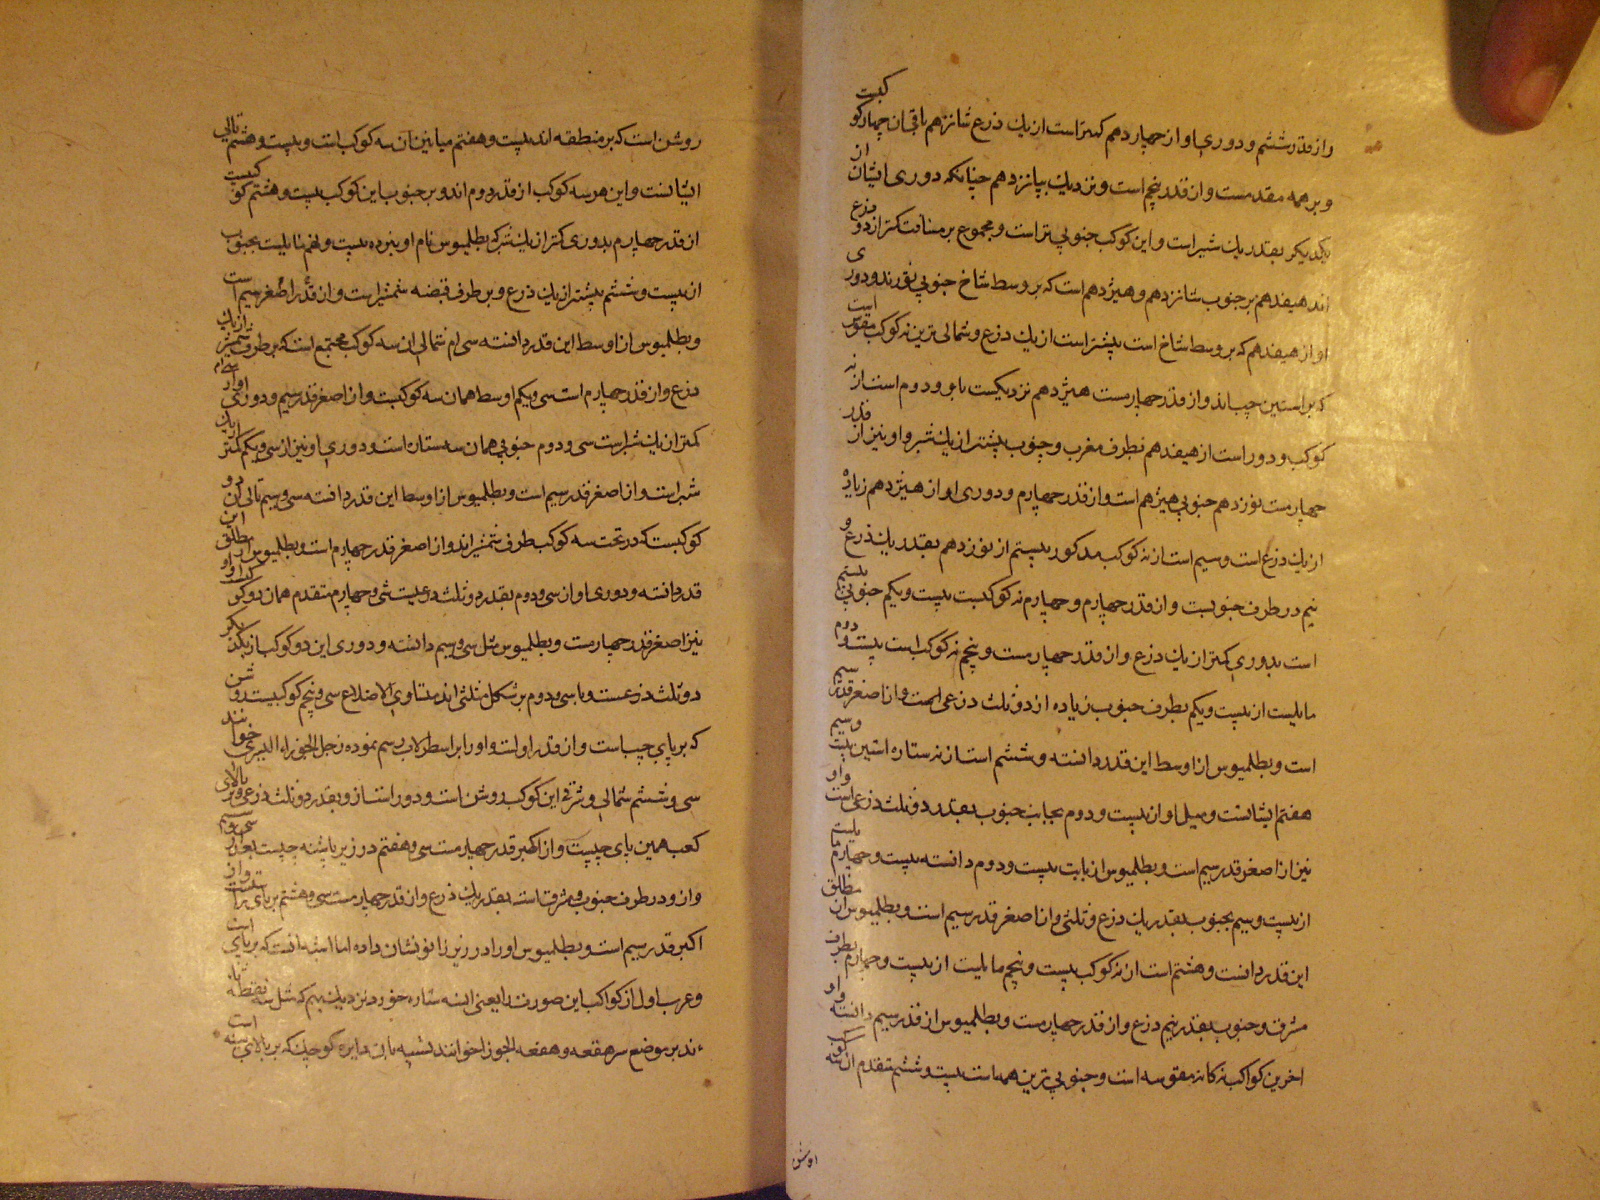 و از قدر ششم و دوری او از چهاردهم کمتر است از یک ذرع شانزدهم باقی ان چهار کوکبست
و بر همه مقدمست و از قدر پنجم است و نزدیک بپانزدهم چنانکه دوری ایشان از
یکدیگر بقدر یک شبر است و این کوکب جنوبی تر است و مجموع بر مسافت کمتر از دو ذرع
اند هیفدهم بر جنوب شانزدهم و هیژدهم است که بر وسط شاخ جنوبی ودوری
او از هیفدهم که بر وسط شاخ است بیشتر است از یک ذرع و شمالی ترین نه کوکب مقوس است
که بر استین چپ اند و از قدر چهارمست هیژدهم نزدیکست باو و دوم است از نه
کوکب و دور است از هیفدهم بطرف مغرب و جنوب بیشتر از یک شبر و او نیز از قدر
چهارمست نوزدهم جنوبی هیژدهم است و از قدر چهارم و دوری او از هیژدهم زیاده
از یک ذرع است و سیم است از نه کوکب مذکور بیستم از نوزدهم بقدر یک ذرع و
نیم در طرف جنوبست و از قدر چهارم و چهارم نه کوکبست بیست و یکم جنوبی بیستم
است بدوری کمتر از یک ذرع و از قدر چهارمست و پنجم نه کوکب است بیست و دوم
مایلست از بیست و یکم بطرف جنوب زیاده از دو ثلث ذرعی است و از اصغر قدر سیم
است و بطلمیوس از اوسط این قدر دانسته و ششم است از نه ستاره استین بیست و سیم
هفتم ایشانست و میل او از بیست و دوم بجانب جنوب بقدر دو ثلث ذرعی است و او
نیز از اصغر قدر سیم است و بطلمیوس از بابت بیست و دوم دانسته بیست و چهارم مایلست
از بیست و سیم بجنوب بقدر یک ذرع و ثلثی و از اصغر قدر سیم است و بطلمیوس از مطلق
این قدر دانست و هشتم است از نه کوکب بیست و پنجم مایلست از بیست و چهارم بطرف
مشرق و جنوب بقدر نیم ذرع و از قدر چهارمست و بطلمیوس از قدر سیم دانسته و او
اخرین کواکب نه کانه مقوسه است و جنوبی ترین همه است بیست و ششم متقدم ان سه کوکب
روشن است که بر منطقه اند بیست و هفتم میانین ان سه کوکب است و بیست و هشتم تالی
ایشانست و این هر سه کوکب از قدر دوم اند و بر جنوب این کوکب بیست و هشتم کوکبیست
از قدر چهارم بدوری کمتر از یک شبر که بطلمیوس نام او نبرده بیست و نهم مایلست بجنوب
از بیست و ششم بیشتر از یک ذرع و بر طرف قبضه شمشیر است و از قدر اصغر سیم است
و بطلمیوس از اوسط این قدر دانسته سی ام شمالی ان سه کوکب مجتمع است که بر طرف شمشیر از یک
ذرع و از قدر چهارم است سی و یکم اوسط همان سه کوکبست و از اصغر قدر سیم و دوری او از سی ام
کمتر از یک شبر است سی و دوم جنوبی همان سه ستاره است و دوری او نیز از سی و یکم کمتر از یک
شبر است و از اصغر قدر سیم است و بطلمیوس از اوسط این قدر دانسته سی و سیم تالی ان دو
کوکبست که در تحت سه کوکب طرف شمشیر اند و از اصغر قدر چهارم است و بطلمیوس از مطلق این
قدر دانسته و دوری او از سی و دوم بقدر دو ثلث ذرعیست سی و چهارم متقدم همان دو کوکب و او
نیز اصغر قدر چهارمست و بطلمیوس مثل سی و سیم دانسته و دوری این دو کوکب از یکدیگر
دو ثلث ذرعست و با سی و دوم بر شکل مثلثی اند متساوی الاضلاع سی و پنجم کوکبیست روشن
که بر پای چپ است و از قدر اول است و او را بر اسطرلاب رسم نموده رجل الجوزاء الیسری خوانند
سی و ششم شمالی و شرقی این کوکب روشن است و دور است از و بقدر دو ثلث ذرعی و بر بالای
کعب همین پای چپست و از اکبر قدر چهارمست سی و هفتم در زیر پاشنه چپست بعد از سی و پنجم
و از و در طرف جنوب و مشرق است بقدر یک ذرع و از قدر چهارمست سی و هشتم بر پای راست و از
اکبر قدر سیم است و بطلمیوس او را در زیر زانو نشان داده اما انست که بر پای است
و عرب اول از کواکب این صورت را یعنی سه ستاره خورد نزدیک بهم که مثل سه نقطه ثاء
اند بر موضع سر هقعه و هقعه الجوزا خوانند تشبیه بان دایره کوچک که بر بالای است